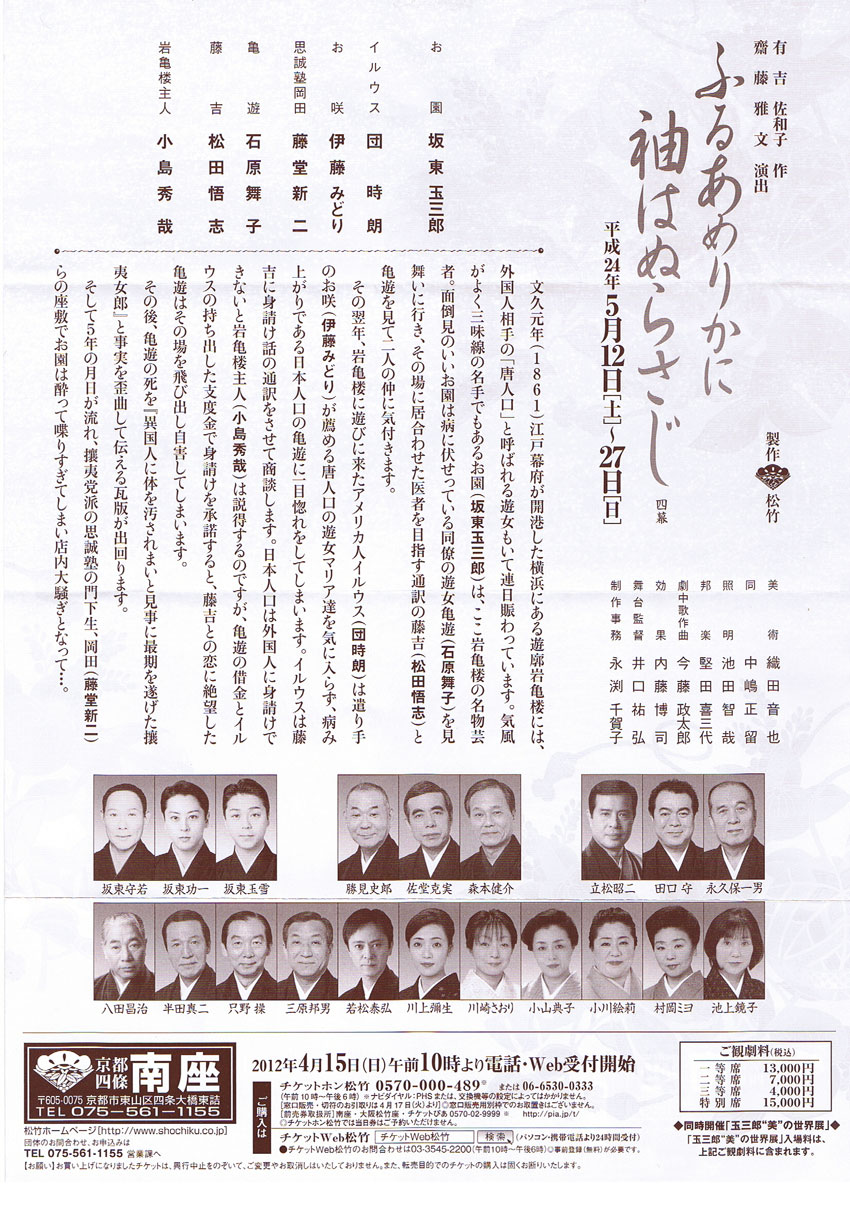 有吉佐和子 作
齋藤雅文 演出
ふるあめりかに
袖はぬらさじ
四幕
平成24年5月12日[土]～27日[日]
製作 松竹
お園 坂東玉三郎
イルウス 団時朗
お咲 伊藤みどり
思誠塾岡田 藤堂新二
亀遊 石原舞子
藤吉 松田悟志
岩亀楼主人 小島秀哉
美術 織田音也
同 中嶋正留
照明 池田智哉
邦楽 堅田喜三代
劇中歌作曲 今藤政太郎
効果 内藤博司
舞台監督 井口祐弘
制作事務 永渕千賀子
文久元年(1861)江戸幕府が開港した横浜にある遊廓岩亀楼には、
外国人相手の「唐人口」と呼ばれる遊女もいて連日賑わっています。気風
がよく三味線の名手でもあるお園(坂東玉三郎)は、ここ岩亀楼の名物芸
者。面倒見のいいお園は病に伏せっている同僚の遊女亀遊(石原舞子)を見
舞いに行き、その場に居合わせた医者を目指す通訳の藤吉(松田悟志)と
亀遊を見て二人の仲に気付きます。
その翌年、岩亀楼に遊びに来たアメリカ人イルウス(団時朗)は遣り手
のお咲(伊藤みどり)が薦める唐人口の遊女マリア達を気に入らず、病み
上がりである日本人口の亀遊に一目惚れをしてしまいます。イルウスは藤
吉に身請け話の通訳をさせて商談します。日本人口は外国人に身請けで
きないと岩亀楼主人(小島秀哉)は説得するのですが、亀遊の借金とイル
ウスの持ち出した支度金で身請けを承諾すると、藤吉との恋に絶望した
亀遊はその場を飛び出し自害してしまいます。
その後、亀遊の死を『異国人に体を汚されまいと見事に最期を遂げた攘
夷女郎』と事実を歪曲して伝える瓦版が出回ります。
そして5年の月日が流れ、攘夷党派の思誠塾の門下生、岡田(藤堂新二)
らの座敷でお園は酔って喋りすぎてしまい店内大騒ぎとなって…。
坂東守若 坂東功一 坂東玉雪 勝見史郎 佐堂克実 森本健介 立松昭二 田口守 永久保一男
八田昌治 半田眞二 只野操 三原邦男 若松泰弘 川上彌生 川崎さおり 小山典子 小川絵莉 村岡ミヨ 池上鏡子
京都四條 南座
〒605-0075 京都市東山区四条大橋東詰
TEL 075-561-1155
松竹ホームページ[http://www.shochiku.co.jp]
団体のお問合わせ、お申込みは
TEL 075-561-1155 営業課へ
2012年4月15日(日)午前10時より電話・Web受付開始
ご購入は
チケットホン松竹 0570-000-489※ または 06-6530-0333
(午前10時～午後6時) ※ナビダイヤル:PHSまたは、交換機等の設定によってはかかりません。
[窓口販売・切符のお引取りは4月17日(火)より]◎窓口販売用別枠でのお取置きはございません。
[前売券取扱所]南座・大阪松竹座・チケットぴあ 0570-02-9999 ※ http://pia.jp/t/
◎チケットホン松竹では当日券はご予約いただけません。
チケットWeb松竹 チケットWeb松竹 検索 (パソコン・携帯電話より24時間受付)
●チケットWeb松竹のお問合わせは03-3545-2200(午前10時～午後6時)◎事前登録(無料)が必要です。
ご観劇料(税込)
一等席 13,000円
二等席 7,000円
三等席 4,000円
特別席 15,000円
◆同時開催「玉三郎“美”の世界展」◆
「玉三郎“美”の世界展」入場料は、
上記ご観劇料に含まれます。
【お願い】お買い上げになりましたチケットは、興行中止をのぞいて、ご変更やお取消しはいたしておりません。また、転売目的でのチケットの購入は固くお断りいたします。